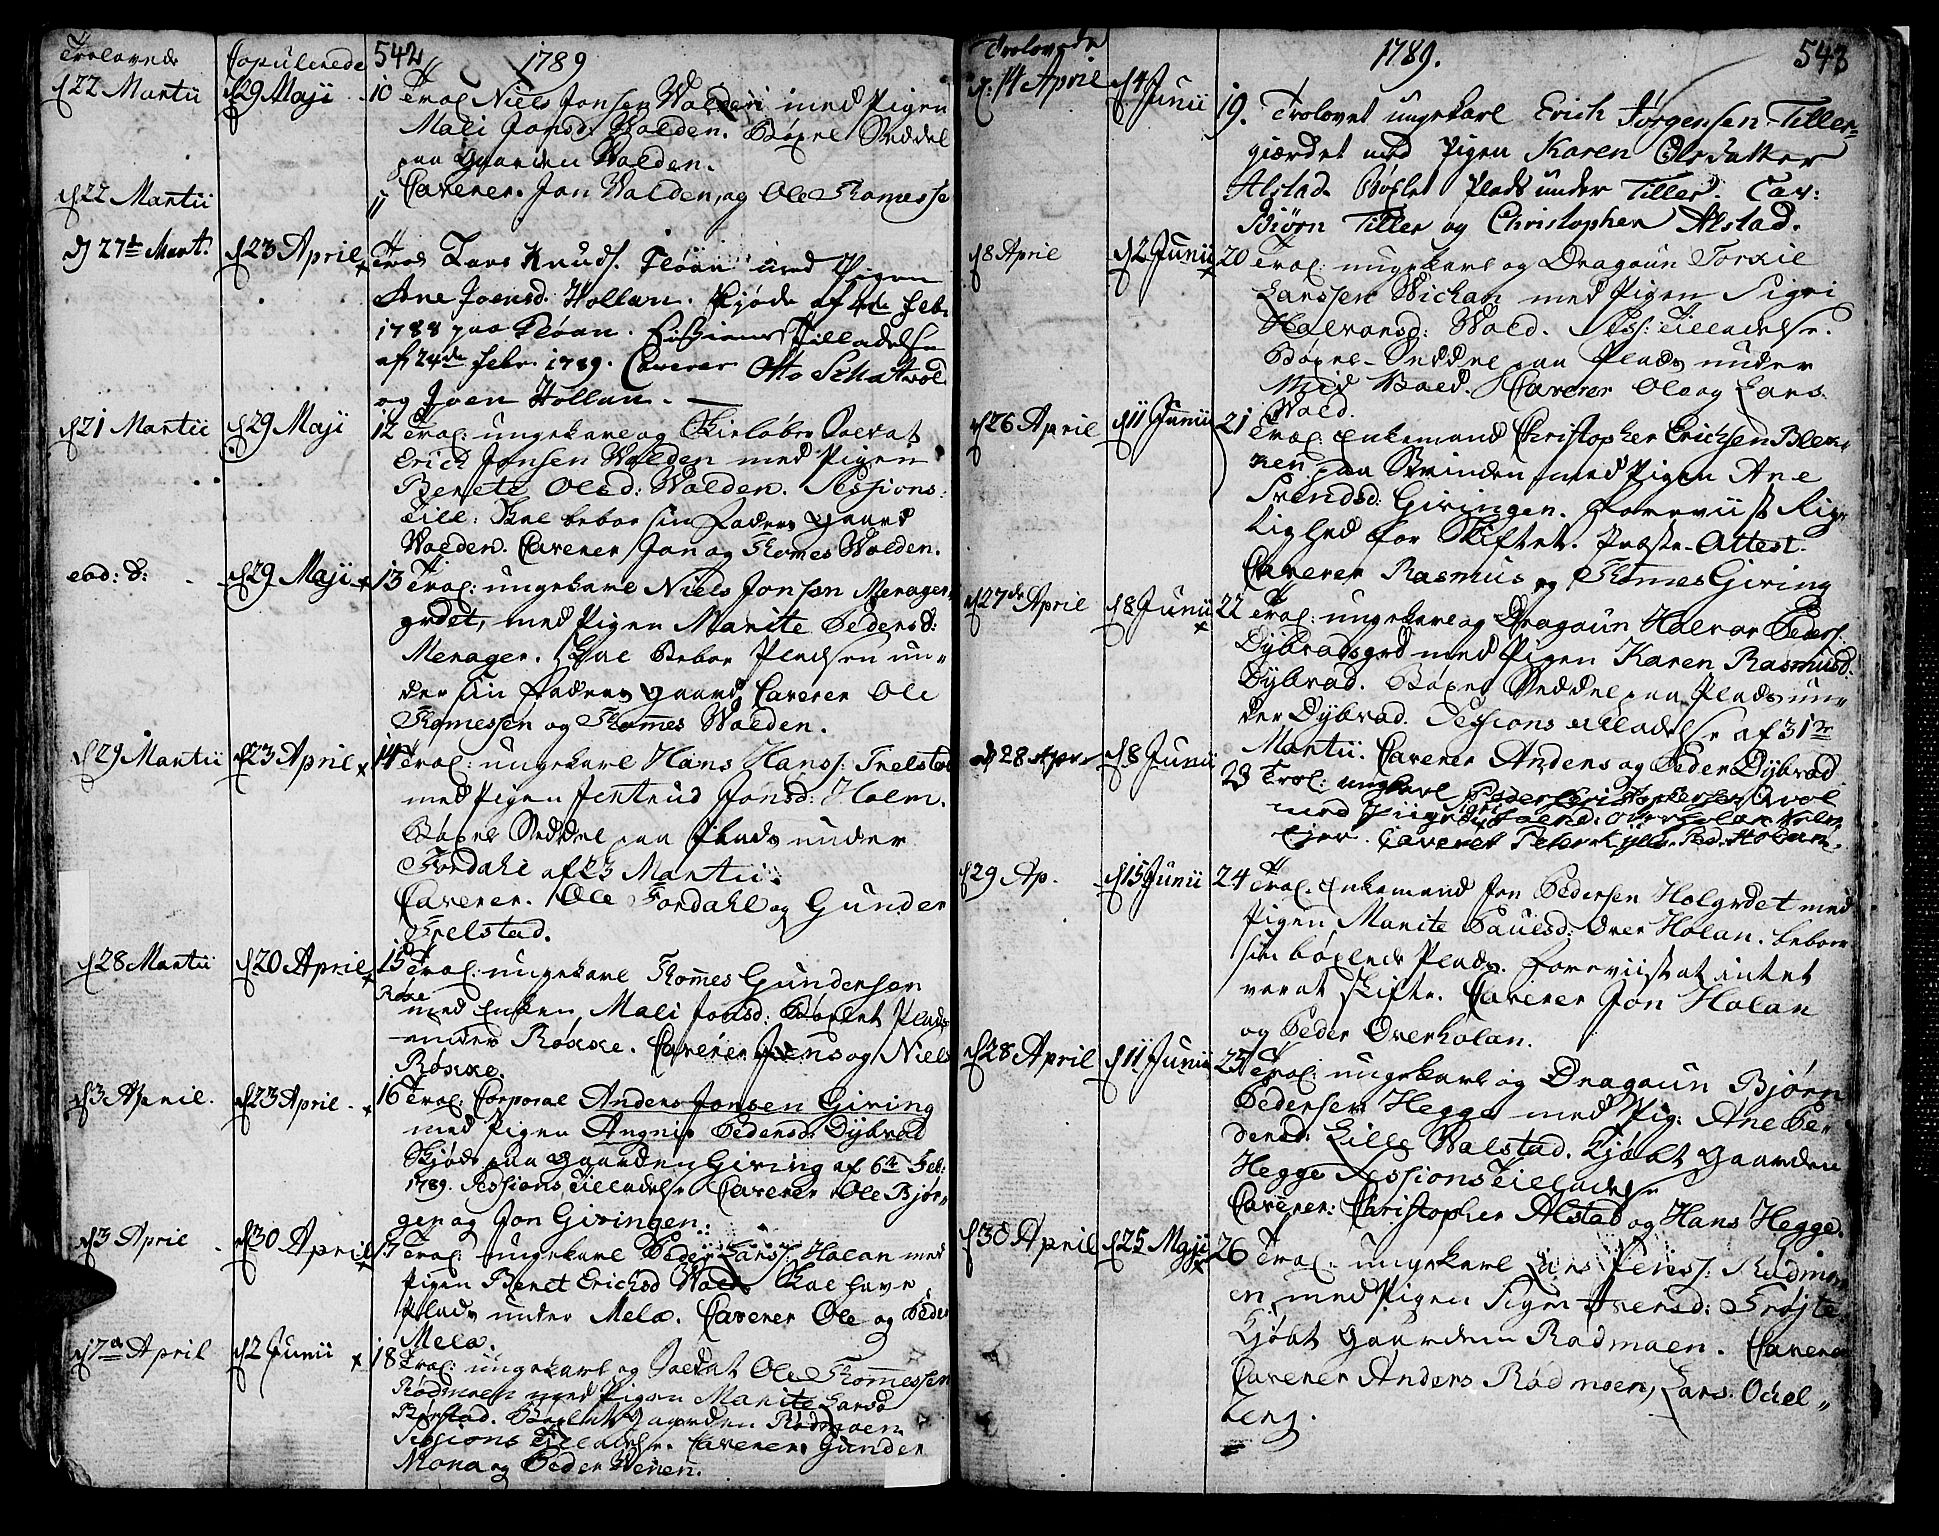 Trolovede Copulerede 542 1789
d 22 Martii d 29 Maji 10 Trol. Niels Jonsen Walden med Pigen
Mali Jonsd: Walden. Böxel Seddel
paa Gaarden Walden.
d 22 Martii 11 Caverer. Jon Walden, og Ole Thomesse
d 27de Mart. d 23 April Trol Lars Knuds. Flöan med Pigen
Ane Joensd. Hollan. Skjöde af 4de Feb.
1788 paa Flöan. Tilladelse
af 24de Febr. 1789. Caverer Otto Schatvol
og Joen Hollan.
d 21 Martii d 29 Maji 12 Trol: ungekarl og Skielöber Soldat
Erich Jonsen Walden med Pigen
Berete Olsd: Walden. Sessions
Till: Skal beboe sin Faders Gaard
Walden. Caverer Jon og Thomes Walden.
eod: d: d 29 Maji 13 Trol: ungekarl Niels Jonsen Menager
grdet, med Pigen Marite Pedersd:
Menager. Skal Beboe Pladsen un-
der sin Faders Gaard Caverer Ole
Thomessen og Thomes Walden.
d 29 Martii d 23 April 14 Trol: ungekarl Hans Hanss: Frelstad
med Pigen Jertrud Jonsd: Holm.
Böxel Seddel paa Plads under
Fordahl af 23 Martii.
Caverer. Ole Fordahl og Gunder
Frelstad.
d 28 Martii d 20 April 15 Trol: ungekarl Thomes Gundersen
Röxe
med Enken Mali Jonsd: Böxlet Plads
under Röxxe. Caverer Jens og Niels
Röxxe.
d 3 April. d 23 April. 16 Trol: Corporal Anders Jonsen Giving
med Pigen Angnis Pedersd: Dybvad
Skjöde paa Gaarden Giving af 6te Feb:
1789. Sessions Tilladelse Caverer Ole Björ-
gen og Jon Givingen.
d 3 April d 30 April 17 Trol: ungekarl Peder Larss: Holan med
Pigen Beret Erichsd Wold Skal have
Plads under Mela. Caverer Ole og Peder
Mela.
d 7de April d 2 Junii 18 Trol: ungekarl og Soldat Ole Thomessen
Rödmoen med Pigen Marite Larsd
Börstad. Böxlet Gaarden Rödmoen
Sessions Tilladelse. Caverer. Gunder
Mona og Peder Weien.
Trolovede 1789. 543
d: 14 April d 4 Junii 19. Trolovet ungekarl Erich Jörgensen Tiller-
giærdet med Pigen Karen Olsdatter
Alstad. Böxlet Plads under Tiller. Cav:
Biörn Tiller og Christopher Alstad.
d 8 April d 2 Junii 20 Trol: ungekarl og Dragoun Torxil
Larssen Wichan med Pigen Sigri
Halvorsd: Wald. Sess: Tilladelse.
Böxel-Seddel paa Plads under
Mid Vold. Caverer Ole og Lars
Wold.
d 26 April d 11 Junii 21 Trol: Enkemand Christopher Erichsen Blek-
ken paa Strinden med Pigen Ane
Svendsd: Givingen. Foreviist Rig-
tighed for Skiftet. Præste-Attest.
Caverer Rasmus og Thomes Giving
d 27de April d 8 Junii 22 Trol: ungekarl og Dragoun Halvor Peders.
Dybvadsgrd med Pigen Karen Rasmusd.
Dybvad. Böxel Seddel paa Plads un-
der Dybvad. Sessions Tilladelse af 31te
Martii. Caverer Anders og Peder Dybvad
d 28 Apr. d 8 Junii 23 Trol: ungkarl Peder Christophersen Qvol
med Piigen Sigri Joensd: Overholan
Caverer Peter Ped: Holan.
d 29 Ap. d 15 Junii 24 Trol. Enkemand Jon Pedersen Holgrdet med
Pigen Marite Paulsd: Over Holan. beboer
sin böxlede Plads. Foreviist at intet
var at skifte. Caverer Jon Holan
og Peder Overholan.
d 28 April d 11 Junii 25 Trol: ungekarl og Dragoun Bjørn
Pedersen Hegge med Pig: Ane Pe-
dersd: Lille Walstad. Kjöbt Gaarden
Hegge Sessions Tilladelse
Caverer: Christopher Alstad og Hans Hegge.
d 30 April d 25 Maji 26 Trol: ungekarl Lars Rödmoe
en, med Pigen Sigri Iversd: Tröjte
Kjöbt Gaarden Rödmoen. Caverer
Caverer Anders Rödmoen, Lars Ockel-
berg.